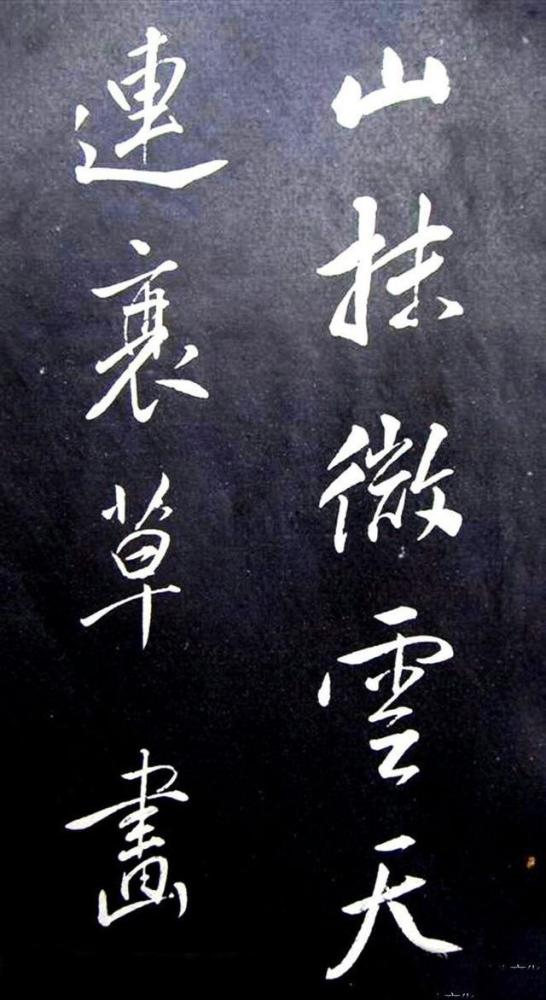 山抹微雲天
連衰草畫